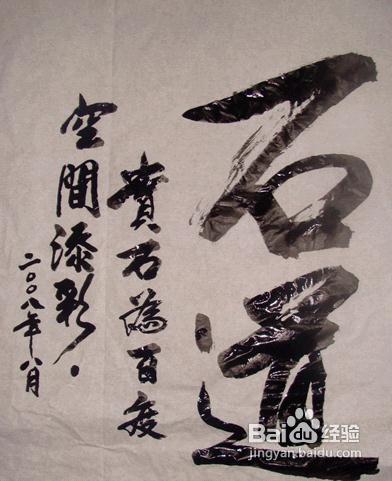 石道
賁石為百度
空間添彩.
二〇〇八年八月
Baidu 经验
jingyan.baidu.com